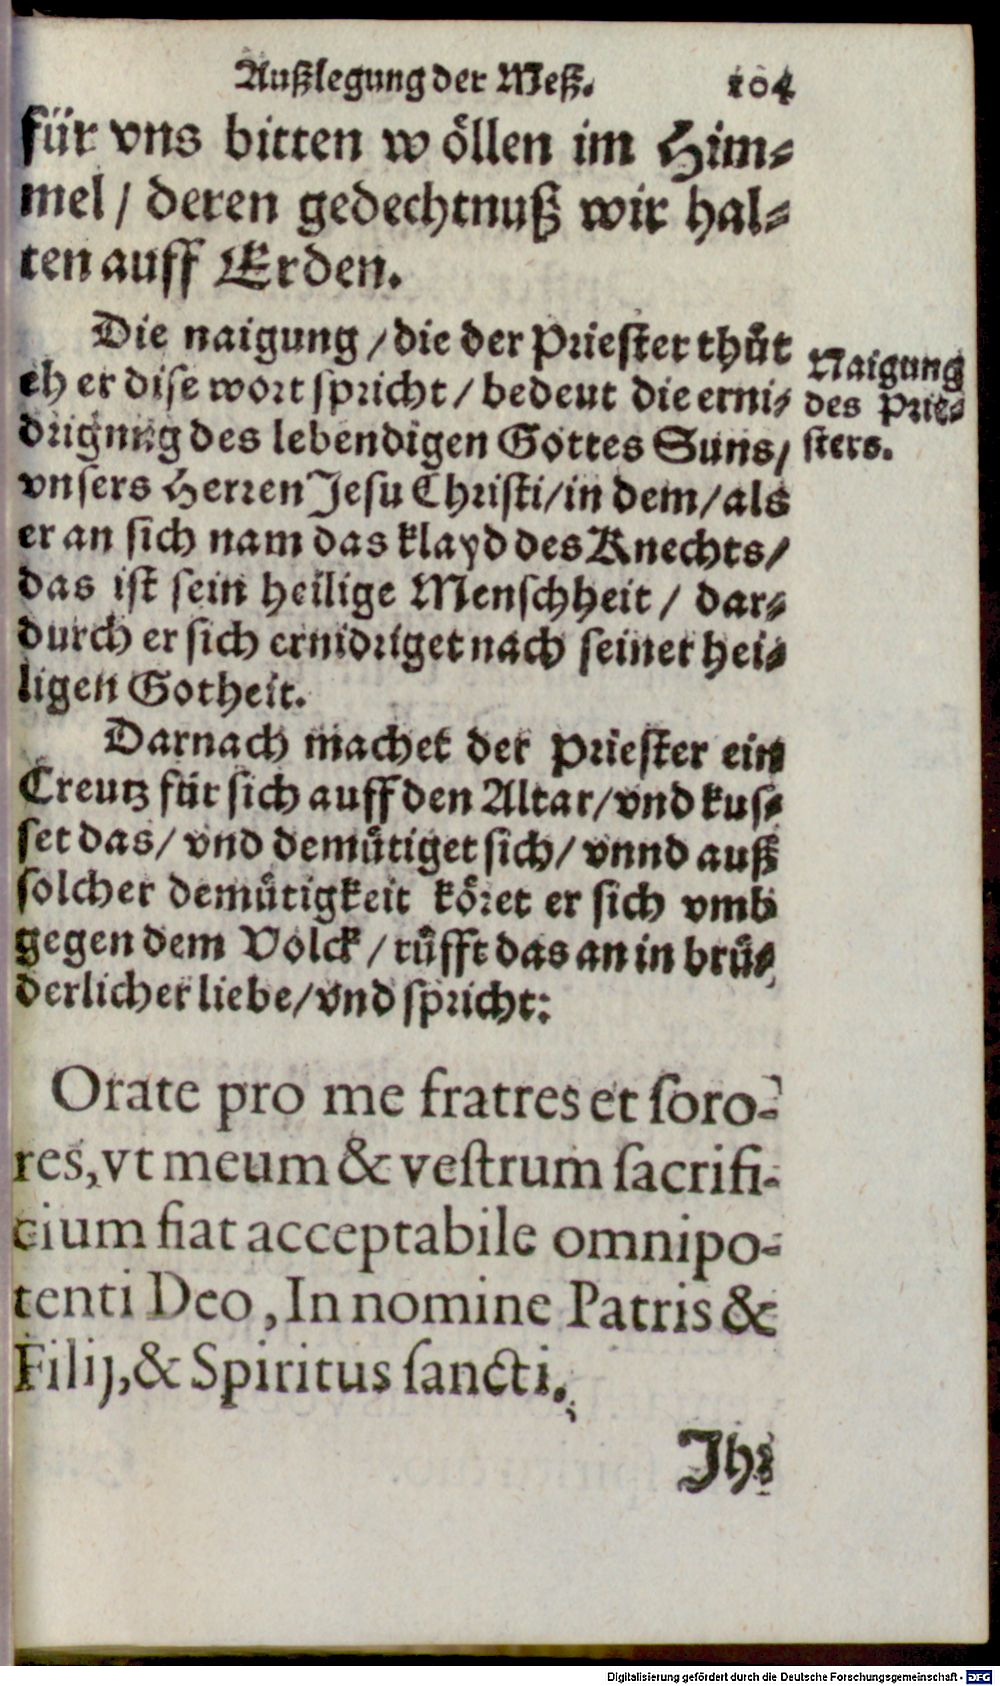 Außlegung der Meß. 104
für vns bitten wöllen im Him⸗
mel / deren gedechtnuß wir hal⸗
ten auff Erden.
Die naigung / die der Priester thůt
eh er dise wort spricht / bedeut die erni⸗
drigung des lebendigen Gottes Suns /
vnsers Herren Jesu Christi / in dem / als
er an sich nam das klayd des Knechts /
das ist sein heilige Menschheit / dar⸗
durch er sich ernidriget nach seiner hei⸗
ligen Gotheit.
Naigung
des Prie⸗
sters.
Darnach machet der Priester ein
Creutz für sich auff den Altar / vnd kus⸗
set das / vnd demütiget sich / vnnd auß
solcher demütigkeit köret er sich vmb
gegen dem Volck / rüfft das an in brü⸗
derlicher liebe / vnd spricht:
Orate pro me fratres et soro-
res, vt meum & vestrum sacrifi-
cium fiat acceptabile omnipo-
tenti Deo, In nomine Patris &
Filij, & Spiritus sancti.
Jhr
Digitalisierung gefördert durch die Deutsche Forschungsgemeinschaft - DFG